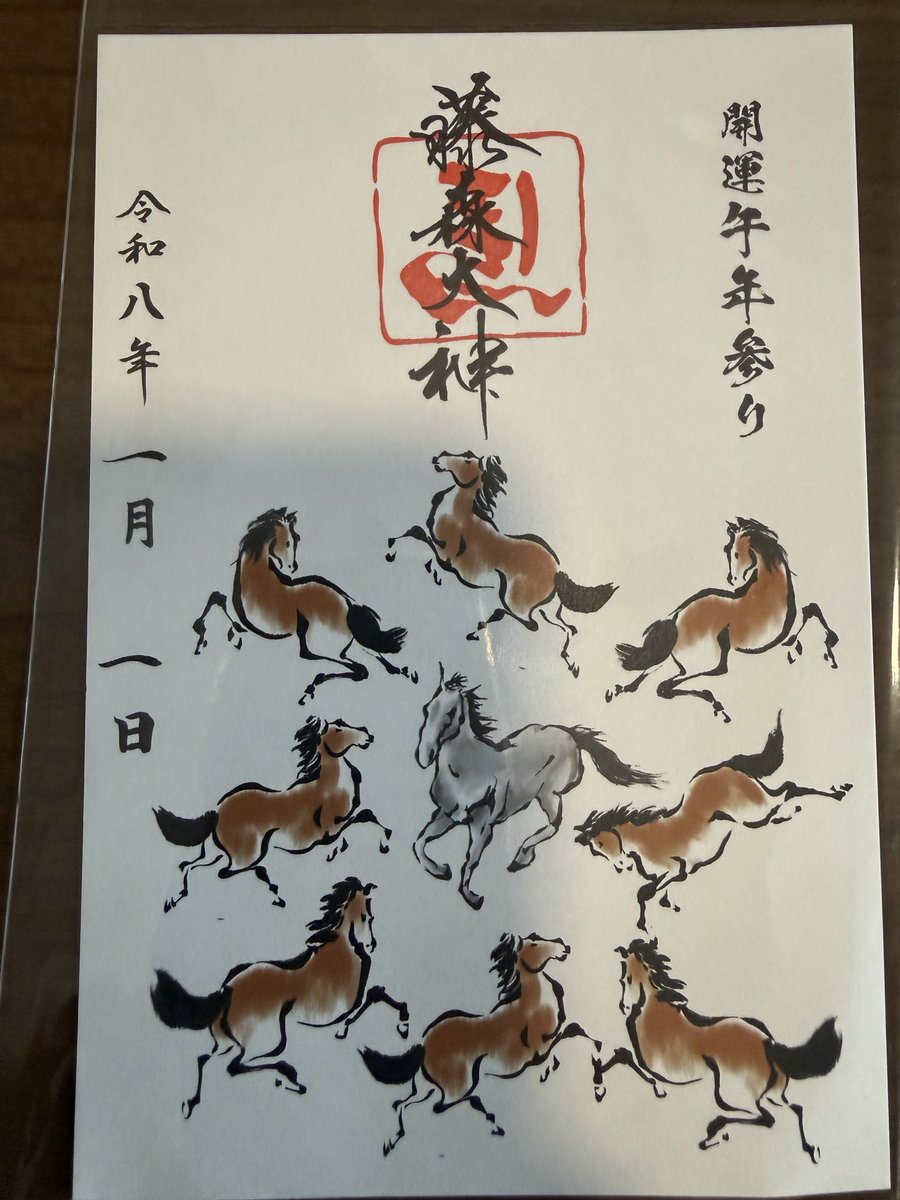 開運午年参り
藤森大神
令和八年 一月 一日